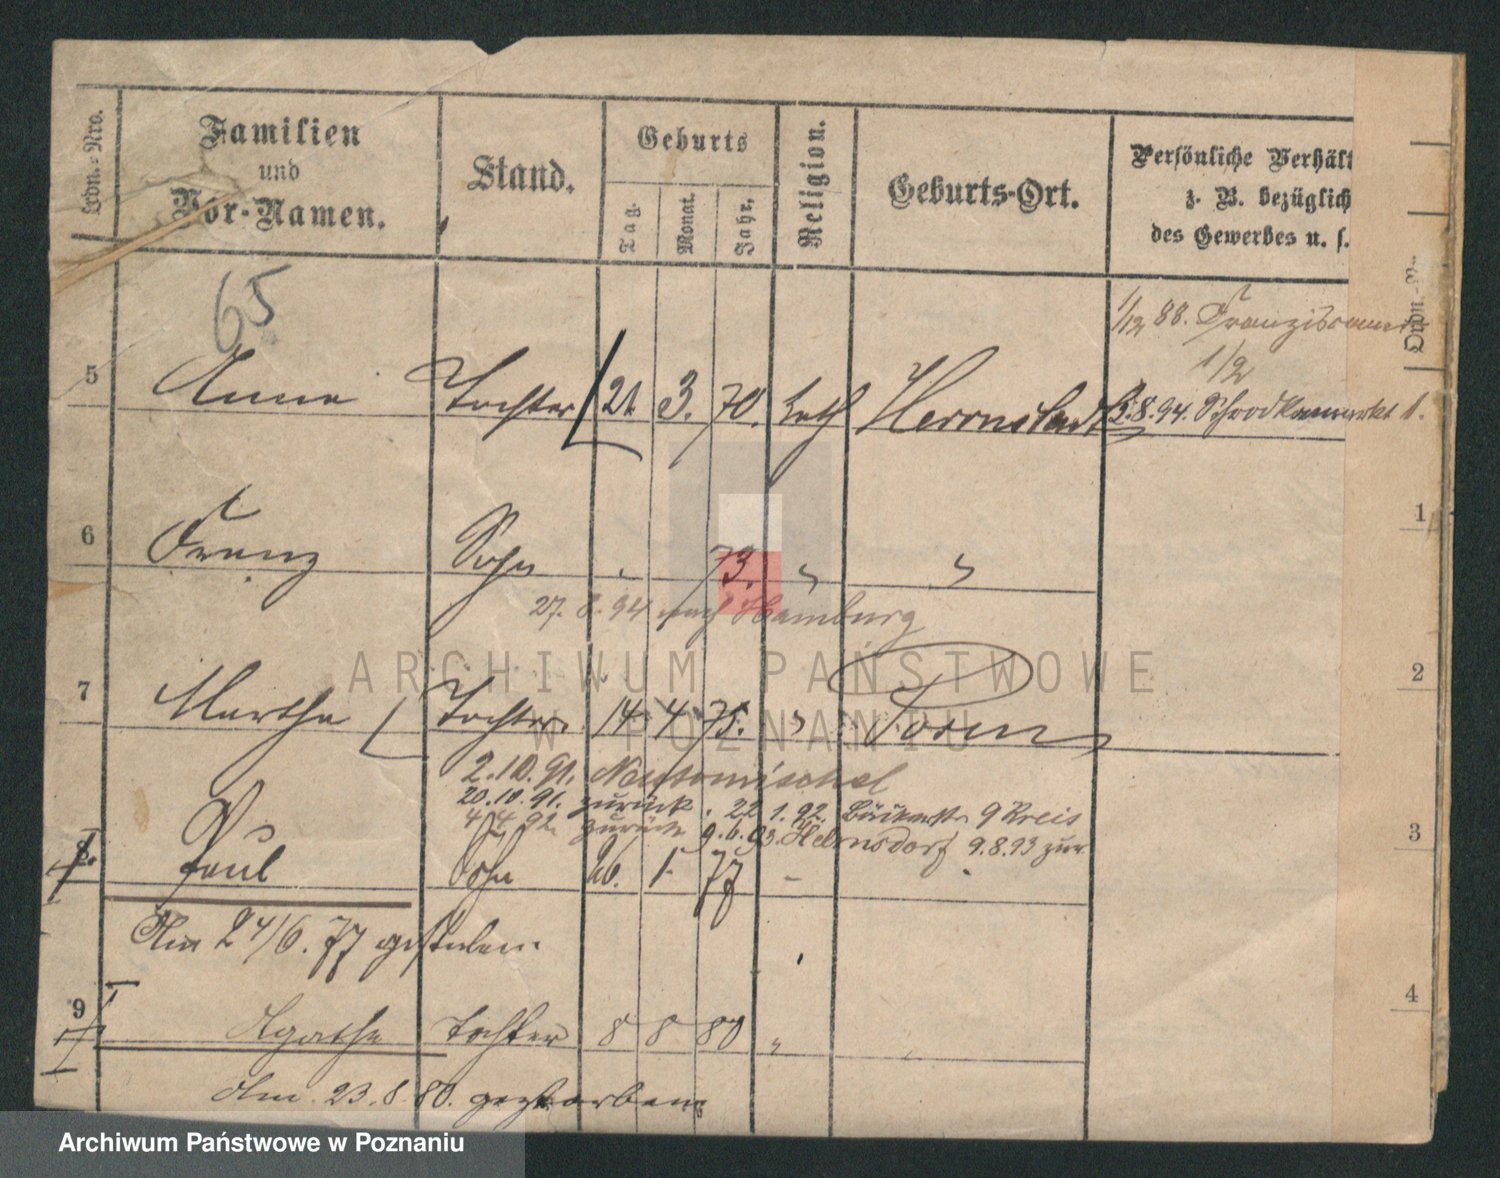 Ordn.-Nro.
Familien
und
Vor-Namen.
Stand.
Geburts
Tag.
Monat.
Jahr.
Religion.
Geburts-Ort.
Persönliche Verhält
z. B. bezüglich
des Gewerbes u. s.
65
1/12 88.
1/2
5 Anna Tochter 21 3. 70. kath Herrnstadt 3.8.94. 1.
6 Franz Sohn 73. " "
27. 8. 94 nach Hamburg
7 Martha Tochter 14 4 75. " Posen
2.10.91. Neutomischel
20.10.91. zurück. 22.1.92. 9 Kreis
4/4 92. zurück 9.6.93. Helmsdorf 9.8.93 zur
8. Paul Sohn 26. 1. 77 -
Am 24/6. 77 gestorben.
9 Agathe Tochter 8 8 80 "
Am. 23.8.80. gestorben.
Ordn.-N
1
2
3
4
ARCHIWUM PAŃSTWOWE
W POZNANIU
Archiwum Państwowe w Poznaniu